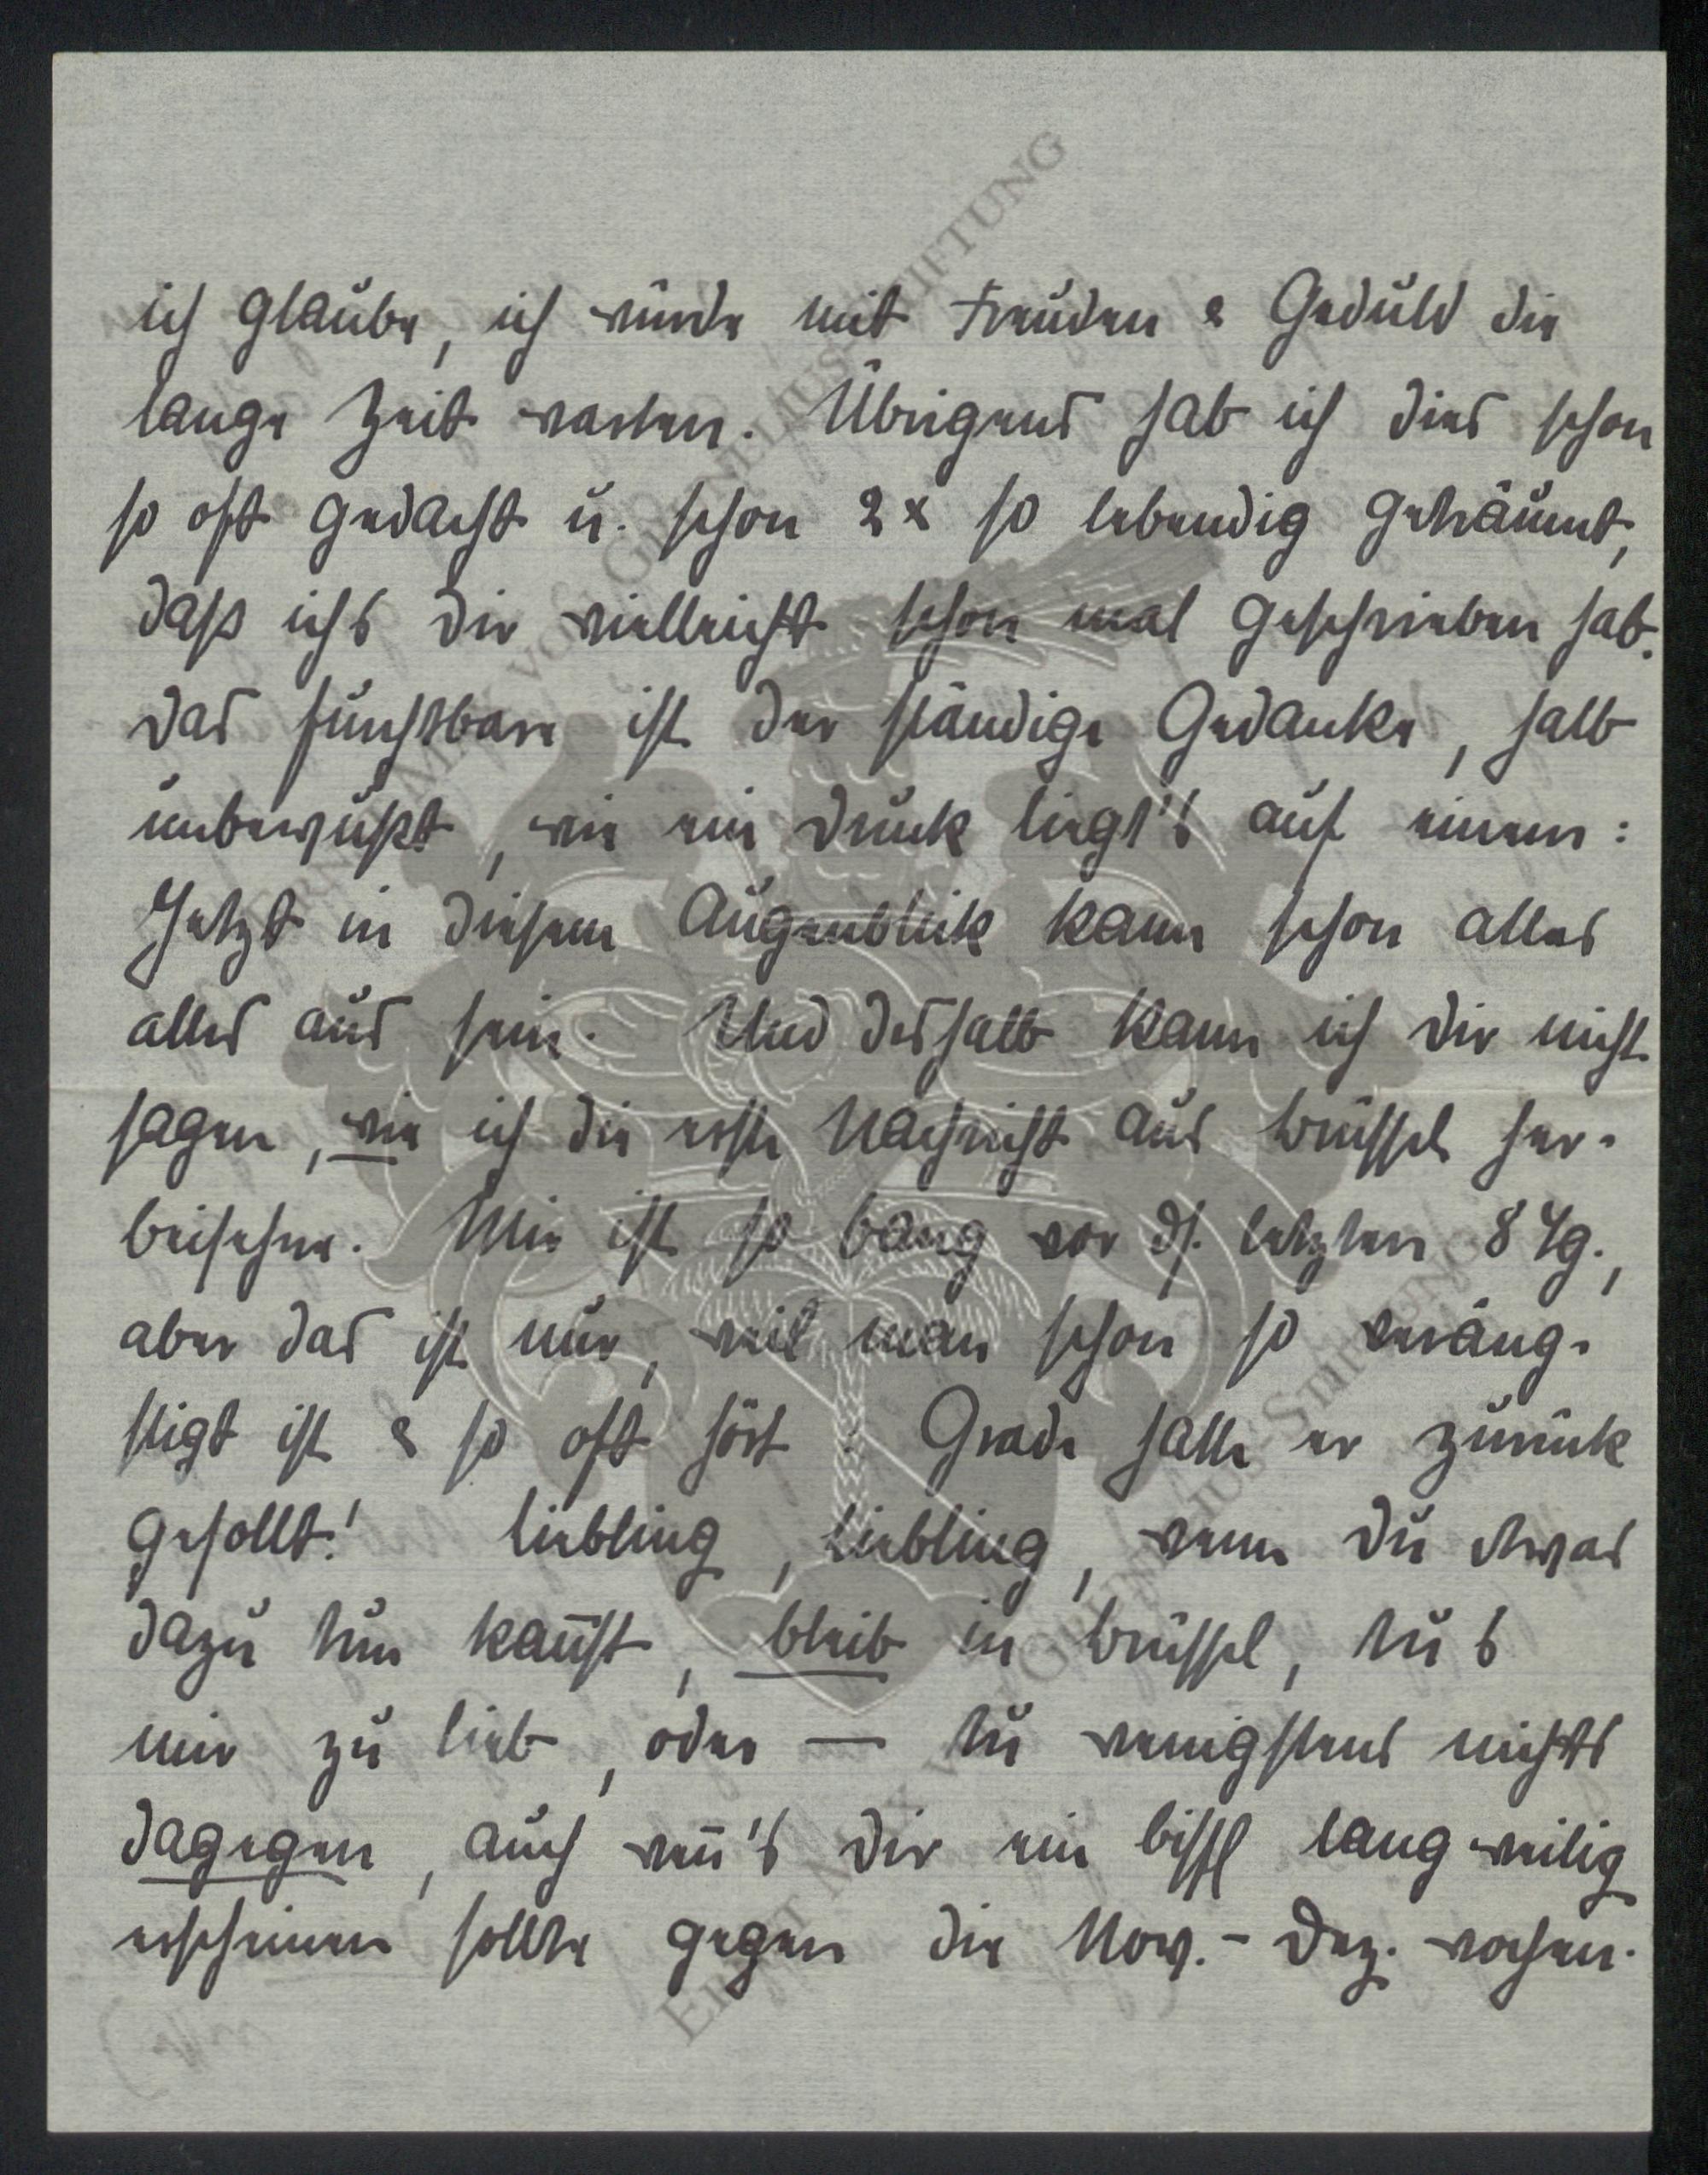 ich glaube, ich würde mit Freuden & Geduld die
lange Zeit warten. Übrigens hab ich dies schon
so oft gedacht u. schon 2x so lebendig geträumt,
daß ichs Dir vielleicht schon mal geschrieben hab.
Das furchtbare ist der ständige Gedanke, halb
unbewußt, wie ein Druck liegt's auf einem:
Jetzt in diesem Augenblick kann schon alles
alles aus sein. Und deshalb kann ich Dir nicht
sagen, wie ich die erste Nachricht aus Brüssel her-
beisehne. Mir ist so bang vor ds. letzten 8 Tg.,
aber das ist nur, weil man schon so veräng-
stigt ist & so oft hört: Grade hatte er zurück
gesollt! Liebling, Liebling, wenn Du etwas
dazu tun kan̄st, bleib in Brüssel, tu's
mir zu lieb, oder — tu wenigstens nichts
dagegen, auch wen̄'s Dir ein bissl lang weilig
erscheinen sollte gegen die Nov.- Dez. wochen.
ERNST MAX VON GRUNELIUS-STIFTUNG
ERNST MAX VON GRUNELIUS-STIFTUNG